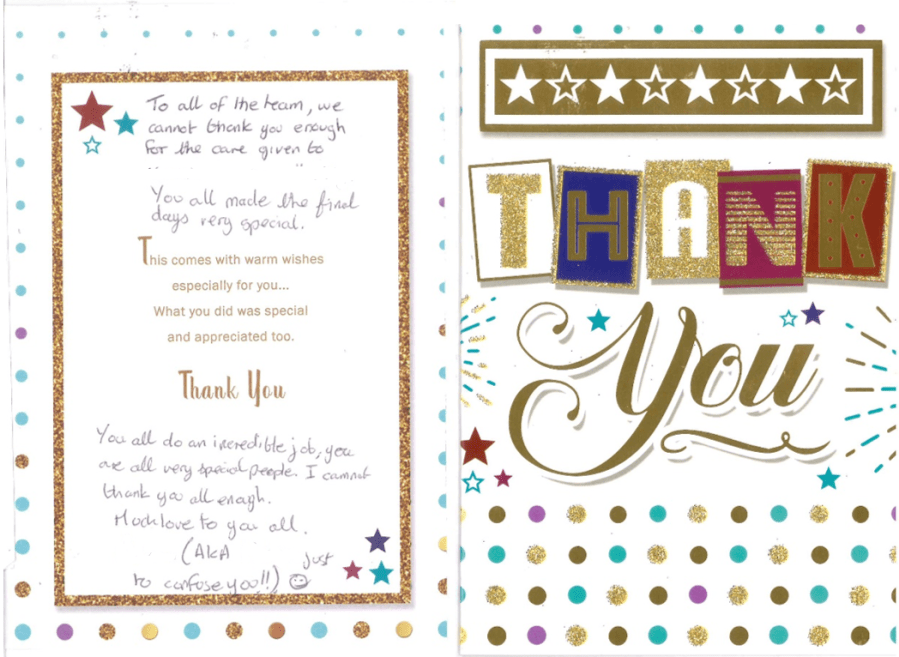 To all of the team, we
cannot thank you enough
for the care given to
You all made the final
days very special.
This comes with warm wishes
especially for you...
What you did was special
and appreciated too.
Thank You
You all do an incredible job, you
are all very special people. I cannot
thank you all enough.
Much love to you all.
(AKA
just
to confuse you!!)
THANK
You